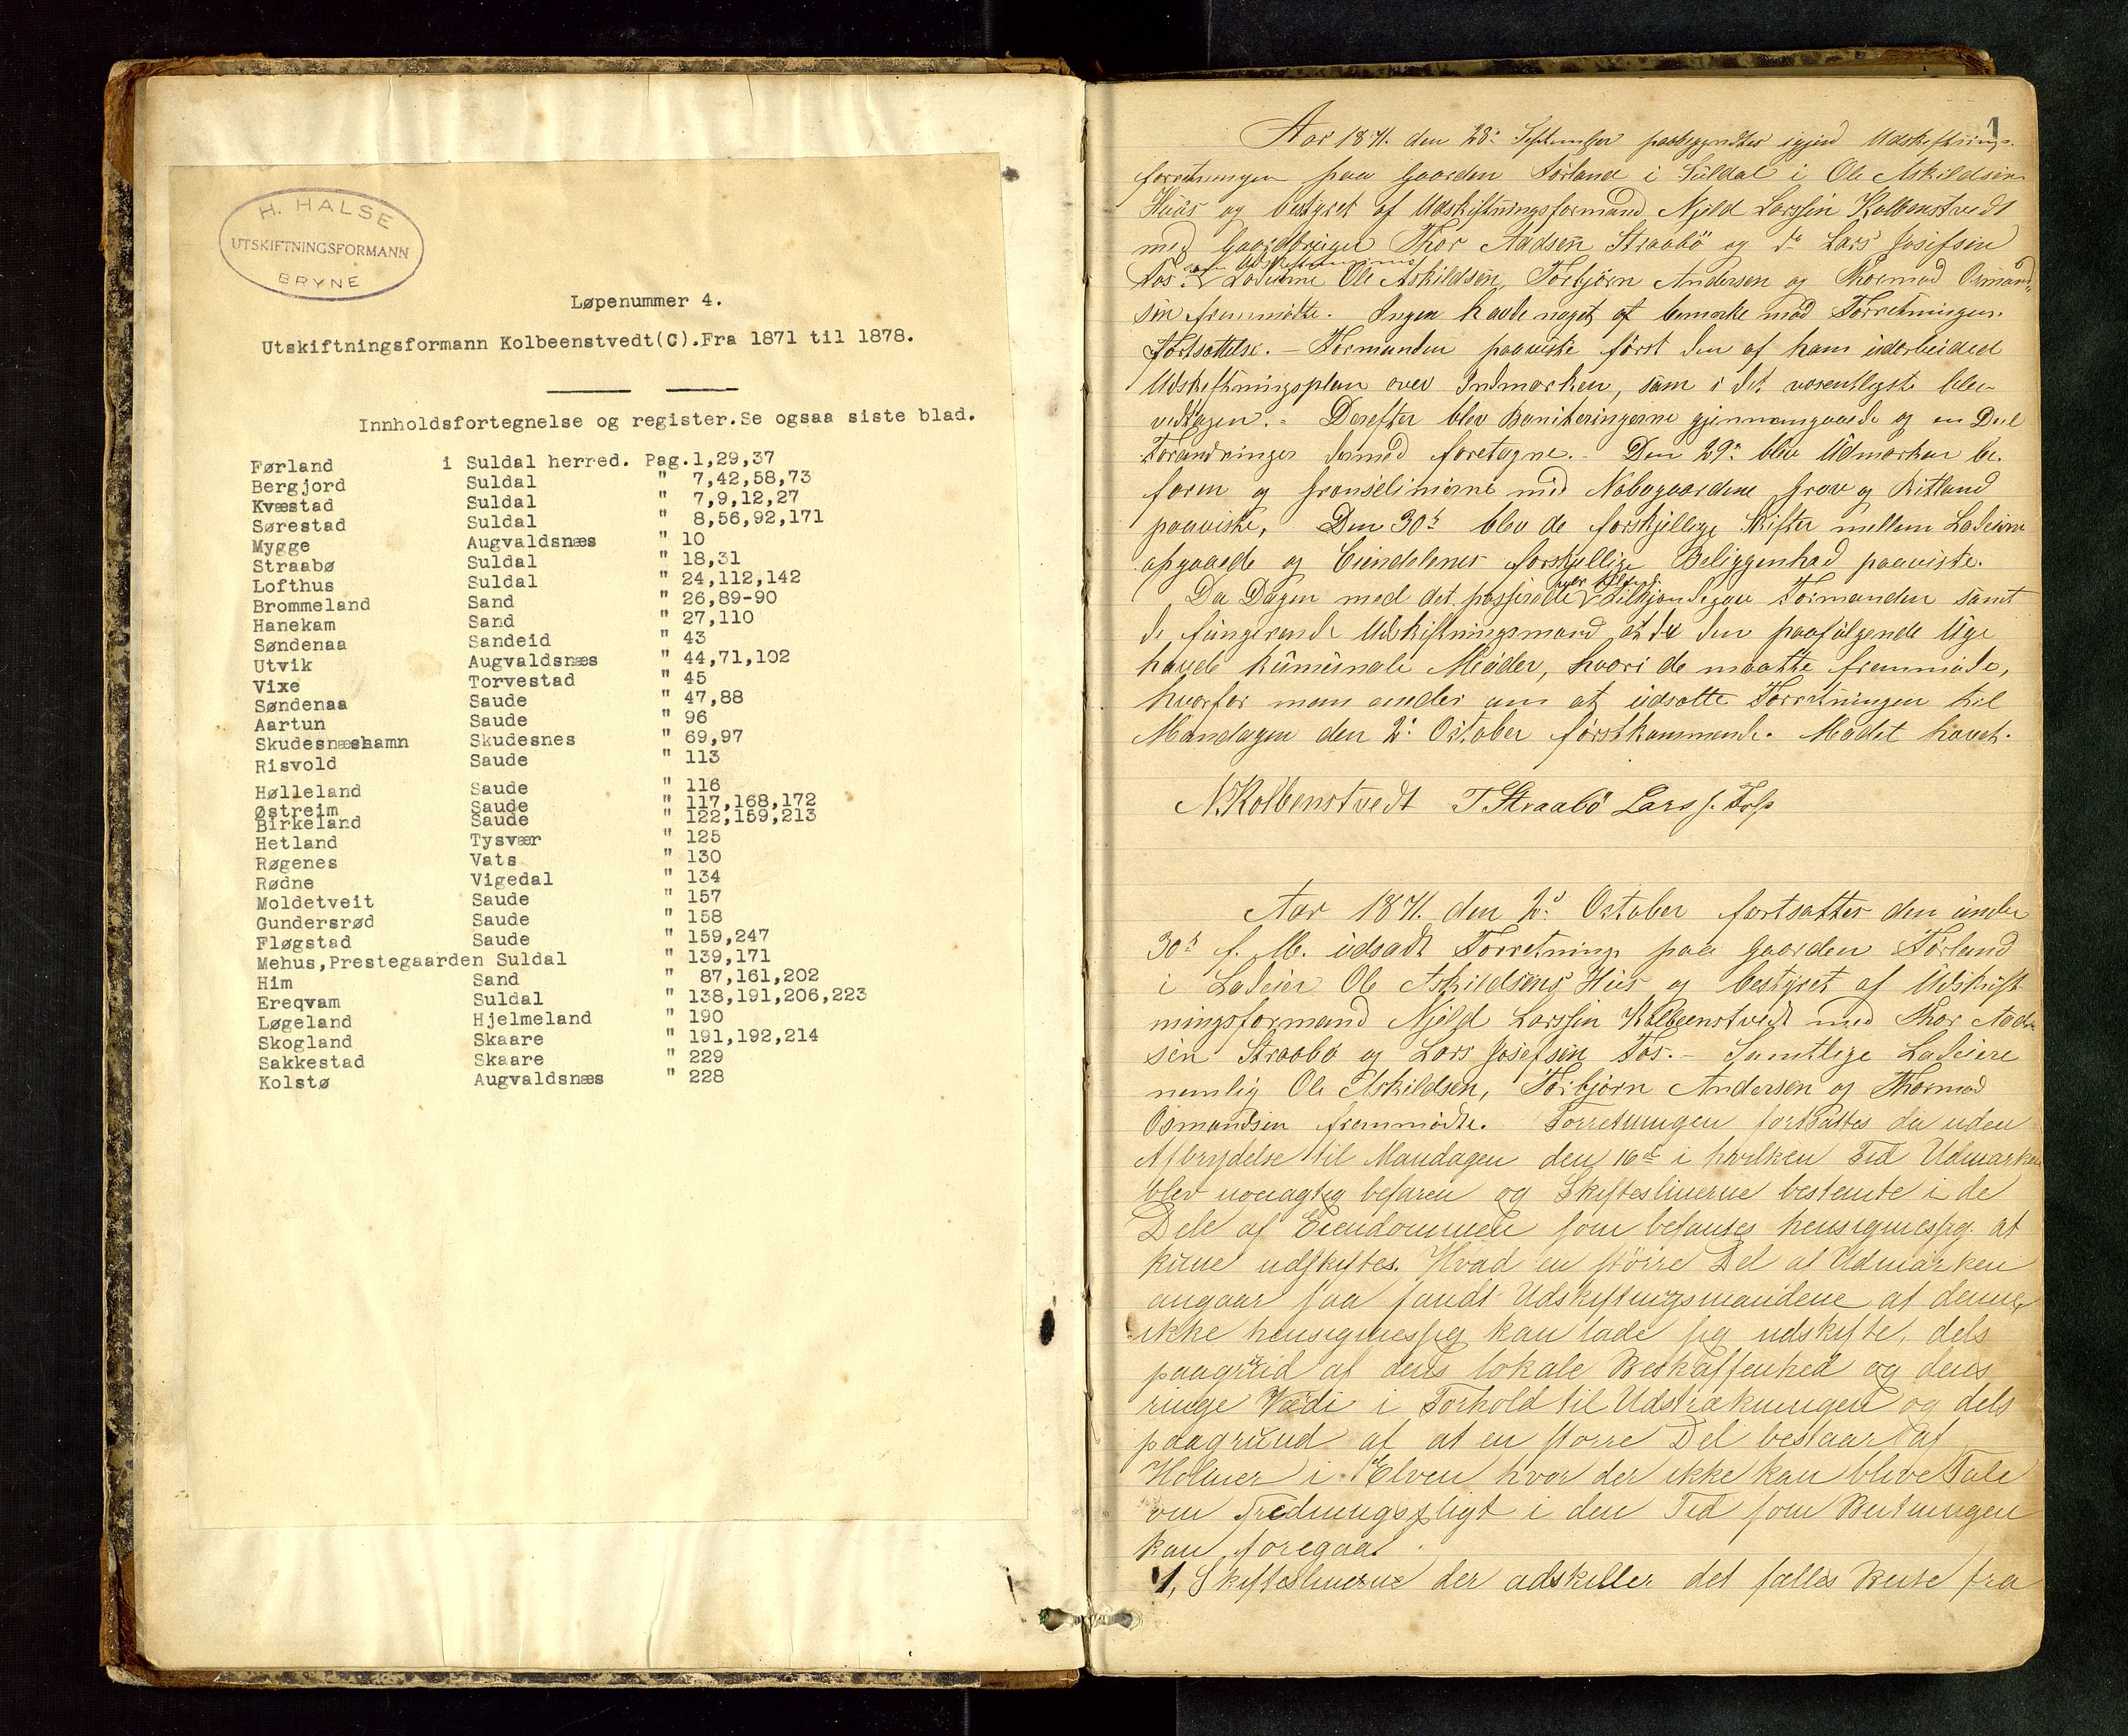 H. HALSE
UTSKIFTNINGSFORMANN
BRYNE
Løpenummer 4.
Utskiftningsformann Kolbeenstvedt(C).Fra 1871 til 1878.
Innholdsfortegnelse og register.Se ogsaa siste blad.
Førland i Suldal herred. Pag.1,29,37
Bergjord Suldal " 7,42,58,73
Kvæstad Suldal " 7,9,12,27
Sørestad Suldal " 8,56,92,171
Mygge Augvaldsnæs " 10
Straabø Suldal " 18,31
Lofthus Suldal " 24,112,142
Brommeland Sand " 26,89-90
Hanekam Sand " 27,110
Søndenaa Sandeid " 43
Utvik Augvaldsnæs " 44,71,102
Vixe Torvestad " 45
Søndenaa Saude " 47,88
Aartun Saude " 96
Skudesnæshamn Skudesnes " 69,97
Risvold Saude " 113
Hølleland Saude " 116
Østreim Saude " 117,168,172
Birkeland Saude " 122,159,213
Hetland Tysvær " 125
Røgenes Vats " 130
Rødne Vigedal " 134
Moldetveit Saude " 157
Gundersrød Saude " 158
Fløgstad Saude " 159,247
Mehus,Prestegaarden Suldal " 139,171
Him Sand " 87,161,202
Ereqvam Suldal " 138,191,206,223
Løgeland Hjelmeland " 190
Skogland Skaare " 191,192,214
Sakkestad Skaare " 229
Kolstø Augvaldsnæs " 228
1
Aar 1871. den 28: September paabegyndtes igjen Udskiftnings-
forretningen paa Gaarden Førland i Suldal i Ole Askildsen
Huus og bestyret af Udskiftningsformand Njeld Larssen Kolbenstvedt
med Gaardbruger Thor Aadsen Straabö og do Lars Josefsen
Fos. Lodeierne Ole Askildsen, Torbjörn Andersen og Thormod Osmund-
sen fremmödte. Ingen havde noget at bemærke mod Forretningens
Fortsættelse. - Formanden paaviste först den af ham udarbeided
Udskiftningsplan over Indmarken, som i det væsentligste blev
vedtagen. - Derefter blev Boniteringerne gjennemgaaede og en Deel
Forandringer dermed foretagne. - Den 29: blev Udmarken be-
faren og Grænselinierne med Nabogaardene Grov og Ritland
paaviste. Den 30te blev de forskjellige Skifter mellem Lodeierne
opgaaede og Eiendelenes forskjellige Beliggenhed paaviste.
Da Dagen med det passerede var tilende tilkjendegav Formanden samt
de fungerende Udskiftningsmænd at de den paafölgende Uge
havde Möder, hvori de maatte fremmöde,
hvorfor man enedes om at udsætte Forretningen til
Mandagen den 2: October förstkommende. Mödet hævet.
N. Kolbenstvedt T Straabö Lars J. Foss
Aar 1871. den 2: October fortsattes den under
30te f. M. udsadt Forretning paa Gaarden Førland
i Lodeier Ole Askildsens Huus og bestyret af Udskift-
ningsformand Njeld Larssen Kolbeenstvedt med Thor Aad-
sen Straabö og Lars Josefsen Fos. - Samtlige Lodeiere
nemlig Ole Askildsen, Torbjörn Andersen og Thormod
Osmundsen fremmödte. Forretningen fortsattes da uden
Afbrydelse til Mandagen den 16de i hvilken Tid Udmarken
blev nöiagtig befaren og Skifteslinerne bestemte i de
Dele af Eiendommen som befantes hensigmessig at
kune udskiftes. Hvad en större Del af Udmarken
angaar saa fandt Udskiftnigsmandene at denne
ikke hensigmessig kan lade sig udskifte, dels
paagrund af dens lokale Beskaffenhed og dens
ringe Værdi i Forhold til Udstrækningen og dels
paagrund af at en större Del bestaar af
Holmer i Elven hvor der ikke kan blive Tale
om Fredningspligt i den Tid som Beitningen
kan foregaa.
1, Skifteslinerne der adskiller det fælles Beite fra